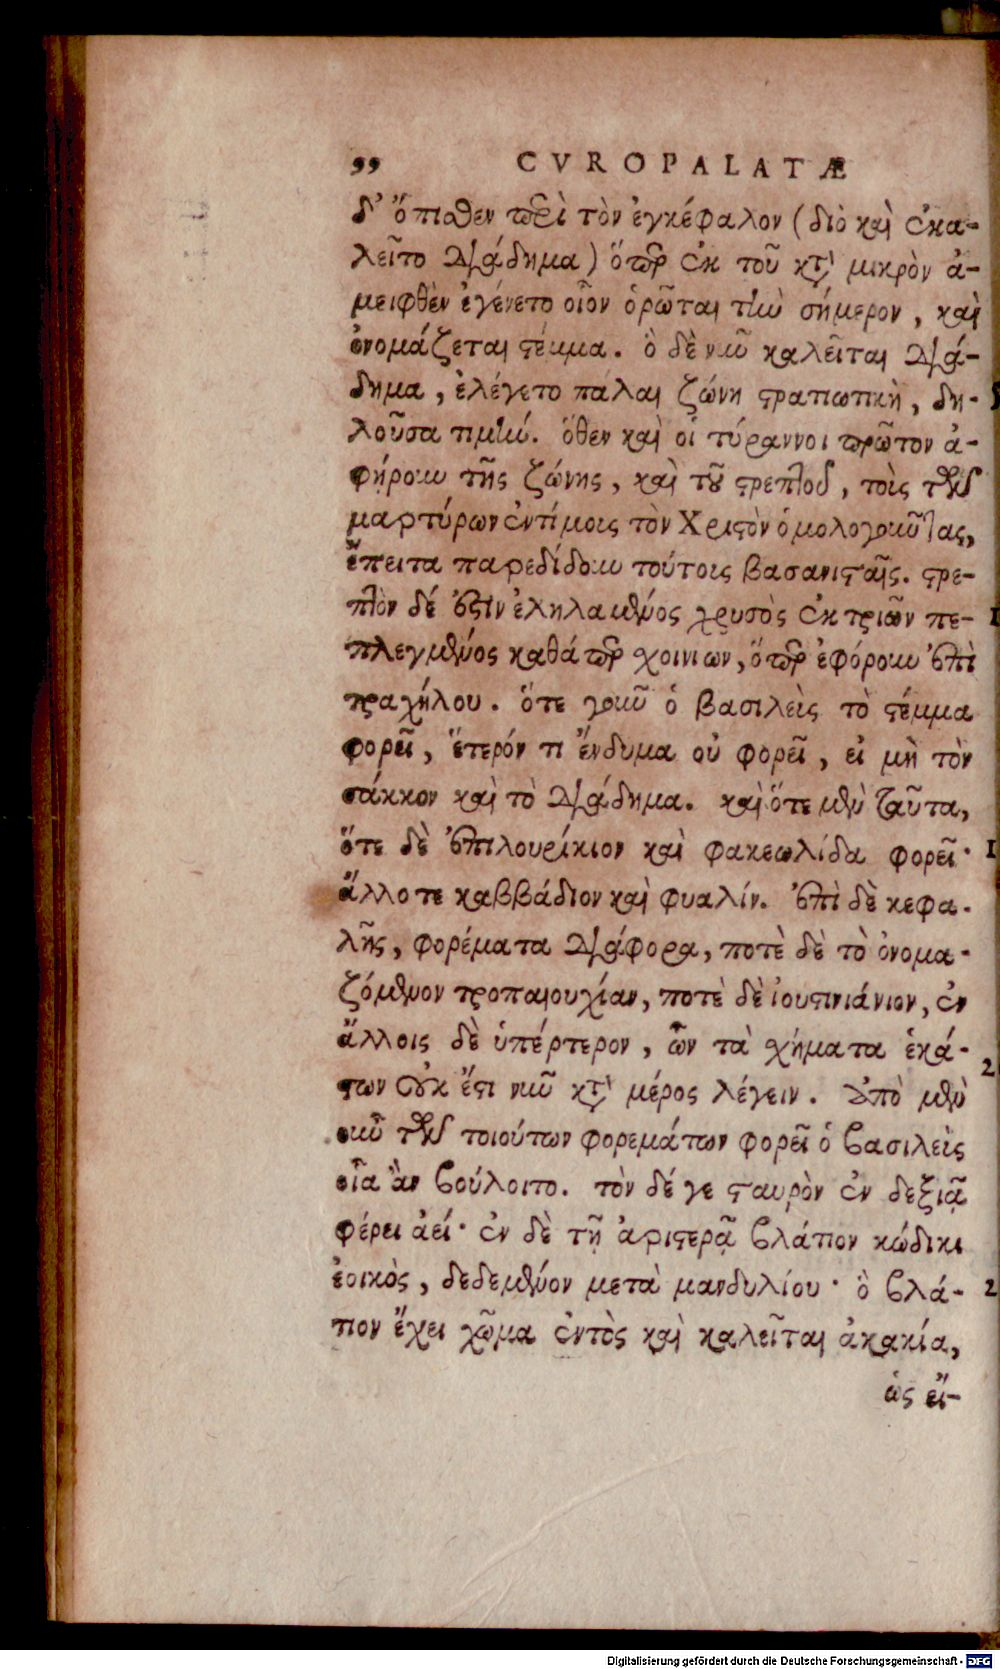 ,, CVROPALATÆ
δ' ὄπισθεν περὶ τὸν ἐγκέφαλον (διὸ καὶ ἐκα-
λεῖτο διάδημα) ὅπερ ἐκ τοῦ κατὰ μικρὸν ἀ-
μειφθὲν ἐγένετο οἷον ὁρᾶται τὴν σήμερον, καὶ
ὀνομάζεται στέμμα. ὃ δὲ νῦν καλεῖται διά-
δημα, ἐλέγετο πάλαι ζώνη στρατιωτικὴ, δη-
λοῦσα τιμήν. ὅθεν καὶ οἱ τύραννοι πρῶτον ἀ-
φῄρουν τῆς ζώνης, καὶ τοῦ στρεπτοῦ, τοὺς τῶν
μαρτύρων ἐντίμους τὸν Χριστὸν ὁμολογοῦντας,
ἔπειτα παρεδίδουν τούτους βασανισταῖς. στρε-
πτὸν δέ ἐστιν ἐληλαμένος χρυσὸς ἐκ τριῶν πε-
πλεγμένος καθάπερ σχοινίων, ὅπερ ἐφόρουν ἐπὶ
τραχήλου. ὅτε γοῦν ὁ βασιλεὺς τὸ στέμμα
φορεῖ, ἕτερόν τι ἔνδυμα οὐ φορεῖ, εἰ μὴ τὸν
σάκκον καὶ τὸ διάδημα. καὶ ὅτε μὲν ταῦτα,
ὅτε δὲ ἐπιλουρίκιον καὶ φακεωλίδα φορεῖ·
ἄλλοτε καββάδιον καὶ φυαλίν. ἐπὶ δὲ κεφα-
λῆς, φορέματα διάφορα, ποτὲ δὲ τὸ ὀνομα-
ζόμενον τροπαιουχίαν, ποτὲ δὲ ἰουστινιάνιον, ἐν
ἄλλοις δὲ ὑπέρτερον, ὧν τὰ σχήματα ἑκά-
στων οὐκ ἔστι νῦν κατὰ μέρος λέγειν. ἀπὸ μὲν
οὖν τῶν τοιούτων φορεμάτων φορεῖ ὁ βασιλεὺς
οἷα ἂν βούλοιτο. τὸν δέ γε σταυρὸν ἐν δεξιᾷ
φέρει ἀεί· ἐν δὲ τῇ ἀριστερᾷ βλάτιον κώδικι
ἐοικὸς, δεδεμένον μετὰ μανδυλίου· ὃ βλά-
τιον ἔχει χῶμα ἐντὸς καὶ καλεῖται ἀκακία,
ὡς εἴ-
Digitalisierung gefördert durch die Deutsche Forschungsgemeinschaft - DFG